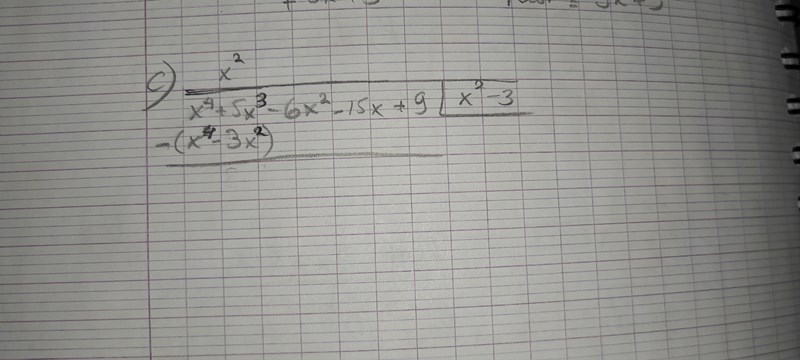 c) x²
x⁴+5x³-6x²-15x+9 x²-3
-(x⁴-3x²)